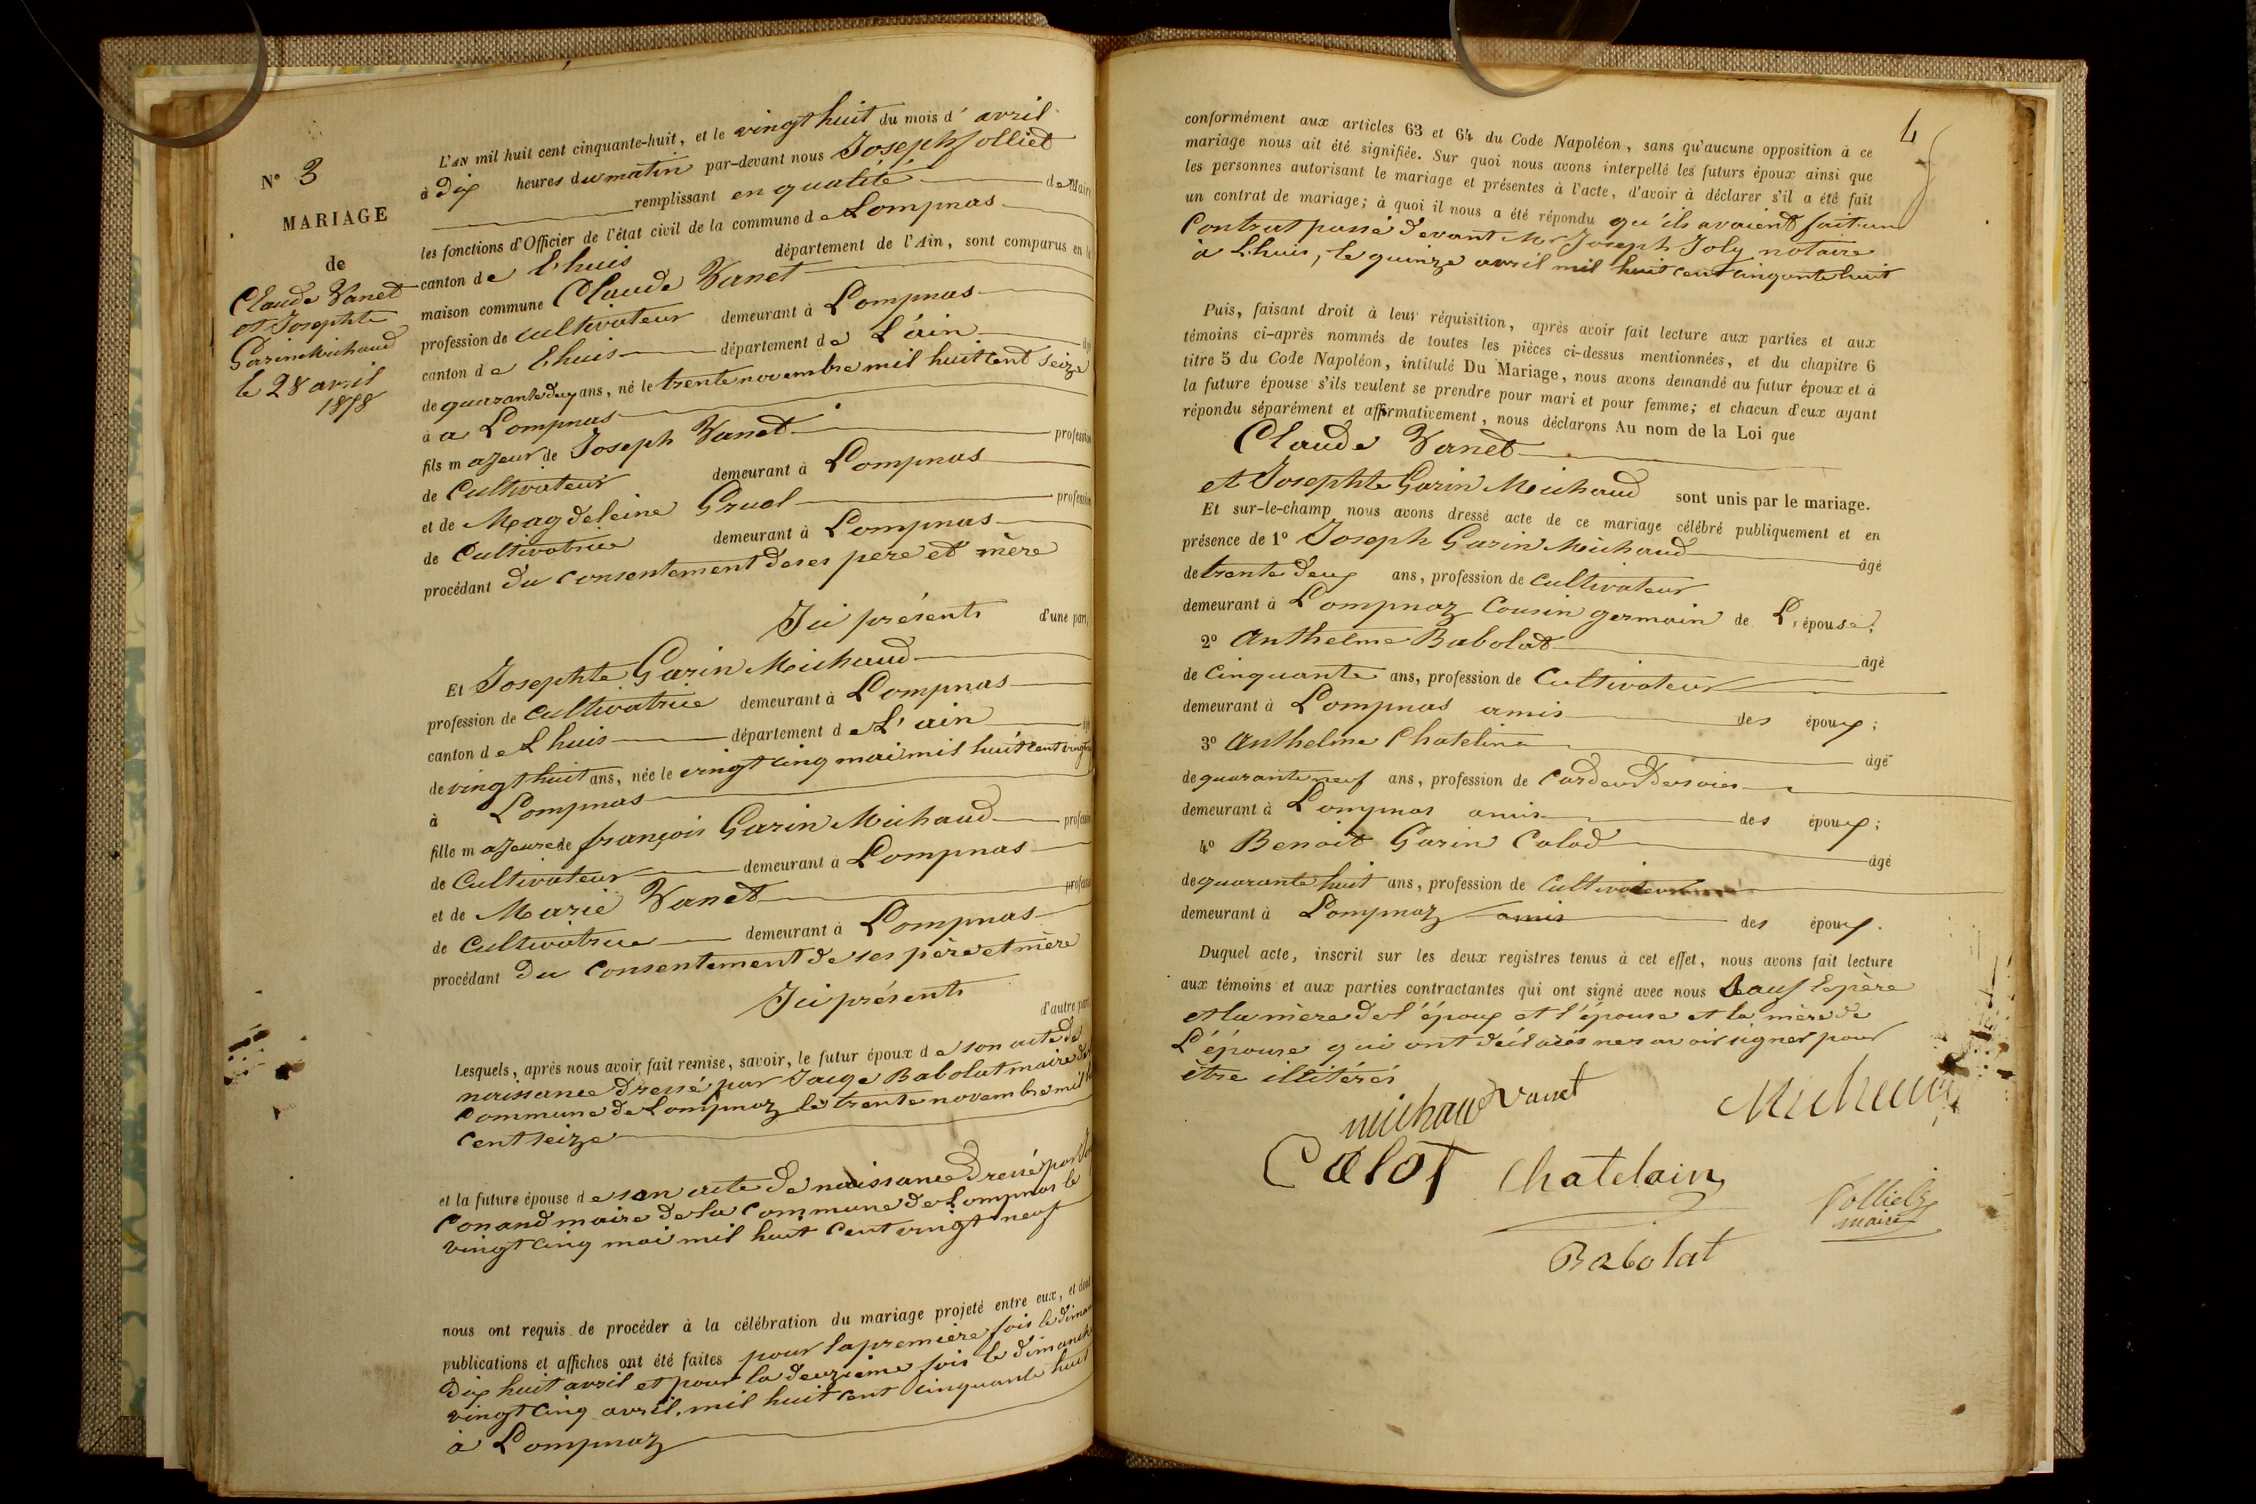 N° 3
MARIAGE
de
Claude Vanet
et Josephte
Garin Michaud
le 28 avril
1858
L'AN mil huit cent cinquante-huit, et le vingt huit du mois d' avril
à dix heures du matin par-devant nous Joseph Jolliet
remplissant en qualité de Maire
les fonctions d'Officier de l'état civil de la commune de Lompnas
canton de Lhuis département de l'Ain, sont comparus en la
maison commune Claude Vanet
profession de cultivateur demeurant à Lompnas
canton de Lhuis département de L'ain
de quarante deux ans, né le trente novembre mil huit cent seize
à a Lompnas
fils majeur de Joseph Vanet profession
de Cultivateur demeurant à Lompnas
et de Magdeleine Gruel profession
de Cultivatrice demeurant à Lompnas
procédant du consentement de ses pere et mère
Ici présents d'une part,
Et Josephte Garin Michaud
profession de cultivatrice demeurant à Lompnas
canton de Lhuis département de L'ain
de vingt huit ans, née le vingt cinq mai mil huit cent vingt
à Lompnas
fille majeure de françois Garin Michaud profession
de Cultivateur demeurant à Lompnas
et de Marie Vanet profession
de Cultivatrice demeurant à Lompnas
procédant du consentement de ses père et mère
Ici présents
d'autre part
Lesquels, après nous avoir fait remise, savoir, le futur époux de son acte de
naissance dressé par Babolat maire de
Commune de Lompnaz le trente novembre mil
cent seize
et la future épouse de son acte de naissance dressé par
Conand maire de la commune de Lompnas le
vingt cinq mai mil huit cent vingt neuf
nous ont requis de procéder à la célébration du mariage projeté entre eux, et dont
publications et affiches ont été faites pour la première fois le
dix huit avril et pour la deuxième fois le dimanche
vingt cinq avril, mil huit cent cinquante huit
à Lompnaz
4
conformément aux articles 63 et 64 du Code Napoléon, sans qu'aucune opposition à ce
mariage nous ait été signifiée. Sur quoi nous avons interpellé les futurs époux ainsi que
les personnes autorisant le mariage et présentes à l'acte, d'avoir à déclarer s'il a été fait
un contrat de mariage; à quoi il nous a été répondu qu'ils avaient fait un
Contrat passé devant Mr Joseph Joly notaire
à Lhuis, le quinze avril mil huit cent cinqante huit
Puis, faisant droit à leur réquisition, après avoir fait lecture aux parties et aux
témoins ci-après nommés de toutes les pièces ci-dessus mentionnées, et du chapitre 6
titre 5 du Code Napoléon, intitulé Du Mariage, nous avons demandé au futur époux et à
la future épouse s'ils veulent se prendre pour mari et pour femme; et chacun d'eux ayant
répondu séparément et affirmativement, nous déclarons Au nom de la Loi que
Claude Vanet
et Josephte Garin Michaud sont unis par le mariage.
Et sur-le-champ nous avons dressé acte de ce mariage célébré publiquement et en
présence de 1° Joseph Garin Michaud âgé
de trente deux ans, profession de cultivateur
demeurant à Lompnaz Cousin germain de L'épouse;
2° Anthelme Babolat âgé
de Cinquante ans, profession de Cultivateur
demeurant à Lompnas amis des époux;
3° Anthelme Chatelin âgé
de quarante neuf ans, profession de Cardeur de soies
demeurant à Lompnas amis des époux;
4° Benoit Garin Calod âgé
de quarante huit ans, profession de Cultivateur
demeurant à Lompnaz amis des époux.
Duquel acte, inscrit sur les deux registres tenus à cet effet, nous avons fait lecture
aux témoins et aux parties contractantes qui ont signé avec nous Sauf le père
et la mère de l'époux et l'épouse et la mère de
L'épouse qui ont déclarés ne savoir signer pour
être illitérés
michaud Vanet Michaud
Calot Chatelain
Jolliet
maire
Babolat